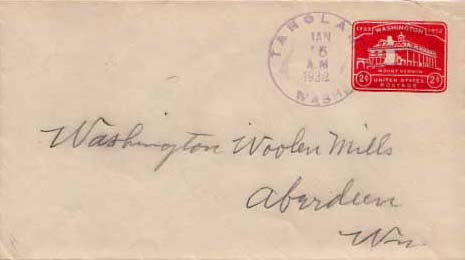 TANGLA
JAN
6
A.M.
1932
WASH.
1732 WASHINGTON 1932
MOUNT VERNON
2¢ UNITED STATES 2¢
POSTAGE
Washington Woolen Mills
Aberdeen
Wn